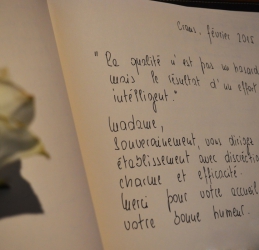 Crans, février 2015
" La qualité n'est pas un hasard
mais le résultat d'un effort
intelligent."
Madame,
Souverainement, vous dirigez
établissement avec discrétion
charme et efficacité.
Merci pour votre accueil
votre bonne humeur.